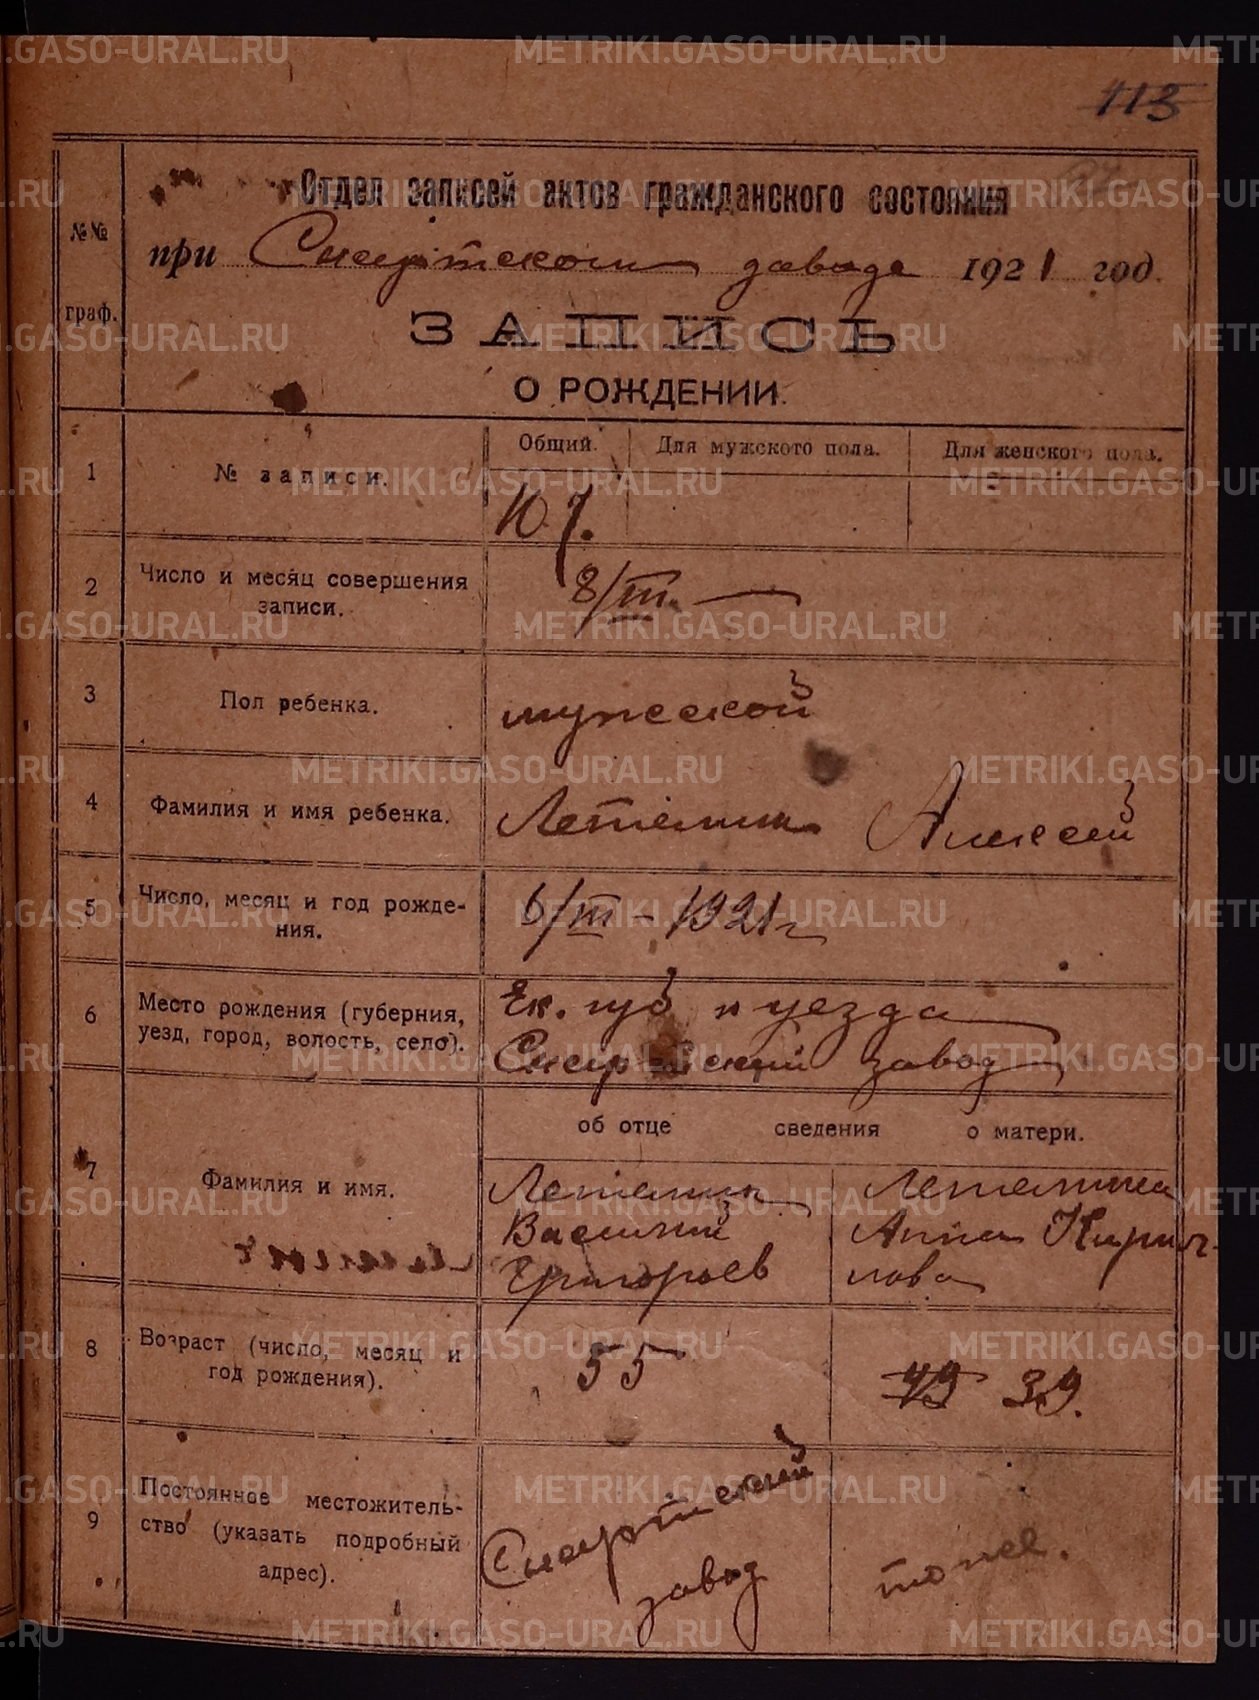 113
Отдел записей актов гражданского состояния
№№ граф.
при Сысертском заводе 1921 год.
ЗАПИСЬ
О РОЖДЕНИИ.
1 № записи. Общий. Для мужского пола. Для женского пола.
107.
2 Число и месяц совершения
записи.
8/III.
3 Пол ребенка.
мужской
4 Фамилия и имя ребенка.
Летемин Алексей
5 Число, месяц и год рожде-
ния.
6/III-1921 г
6 Место рождения (губерния,
уезд, город, волость, село).
Ек. губ и уезда
Сысертский завод
об отце сведения о матери.
7 Фамилия и имя.
Летемин
Василий
Григорьев
Летемина
Анна Кирил-
лова
8 Возраст (число, месяц и
год рождения).
55
49 39.
9 Постоянное местожитель-
ство (указать подробный
адрес).
Сысертский
завод
тоже.
METRIKI.GASO-URAL.RU